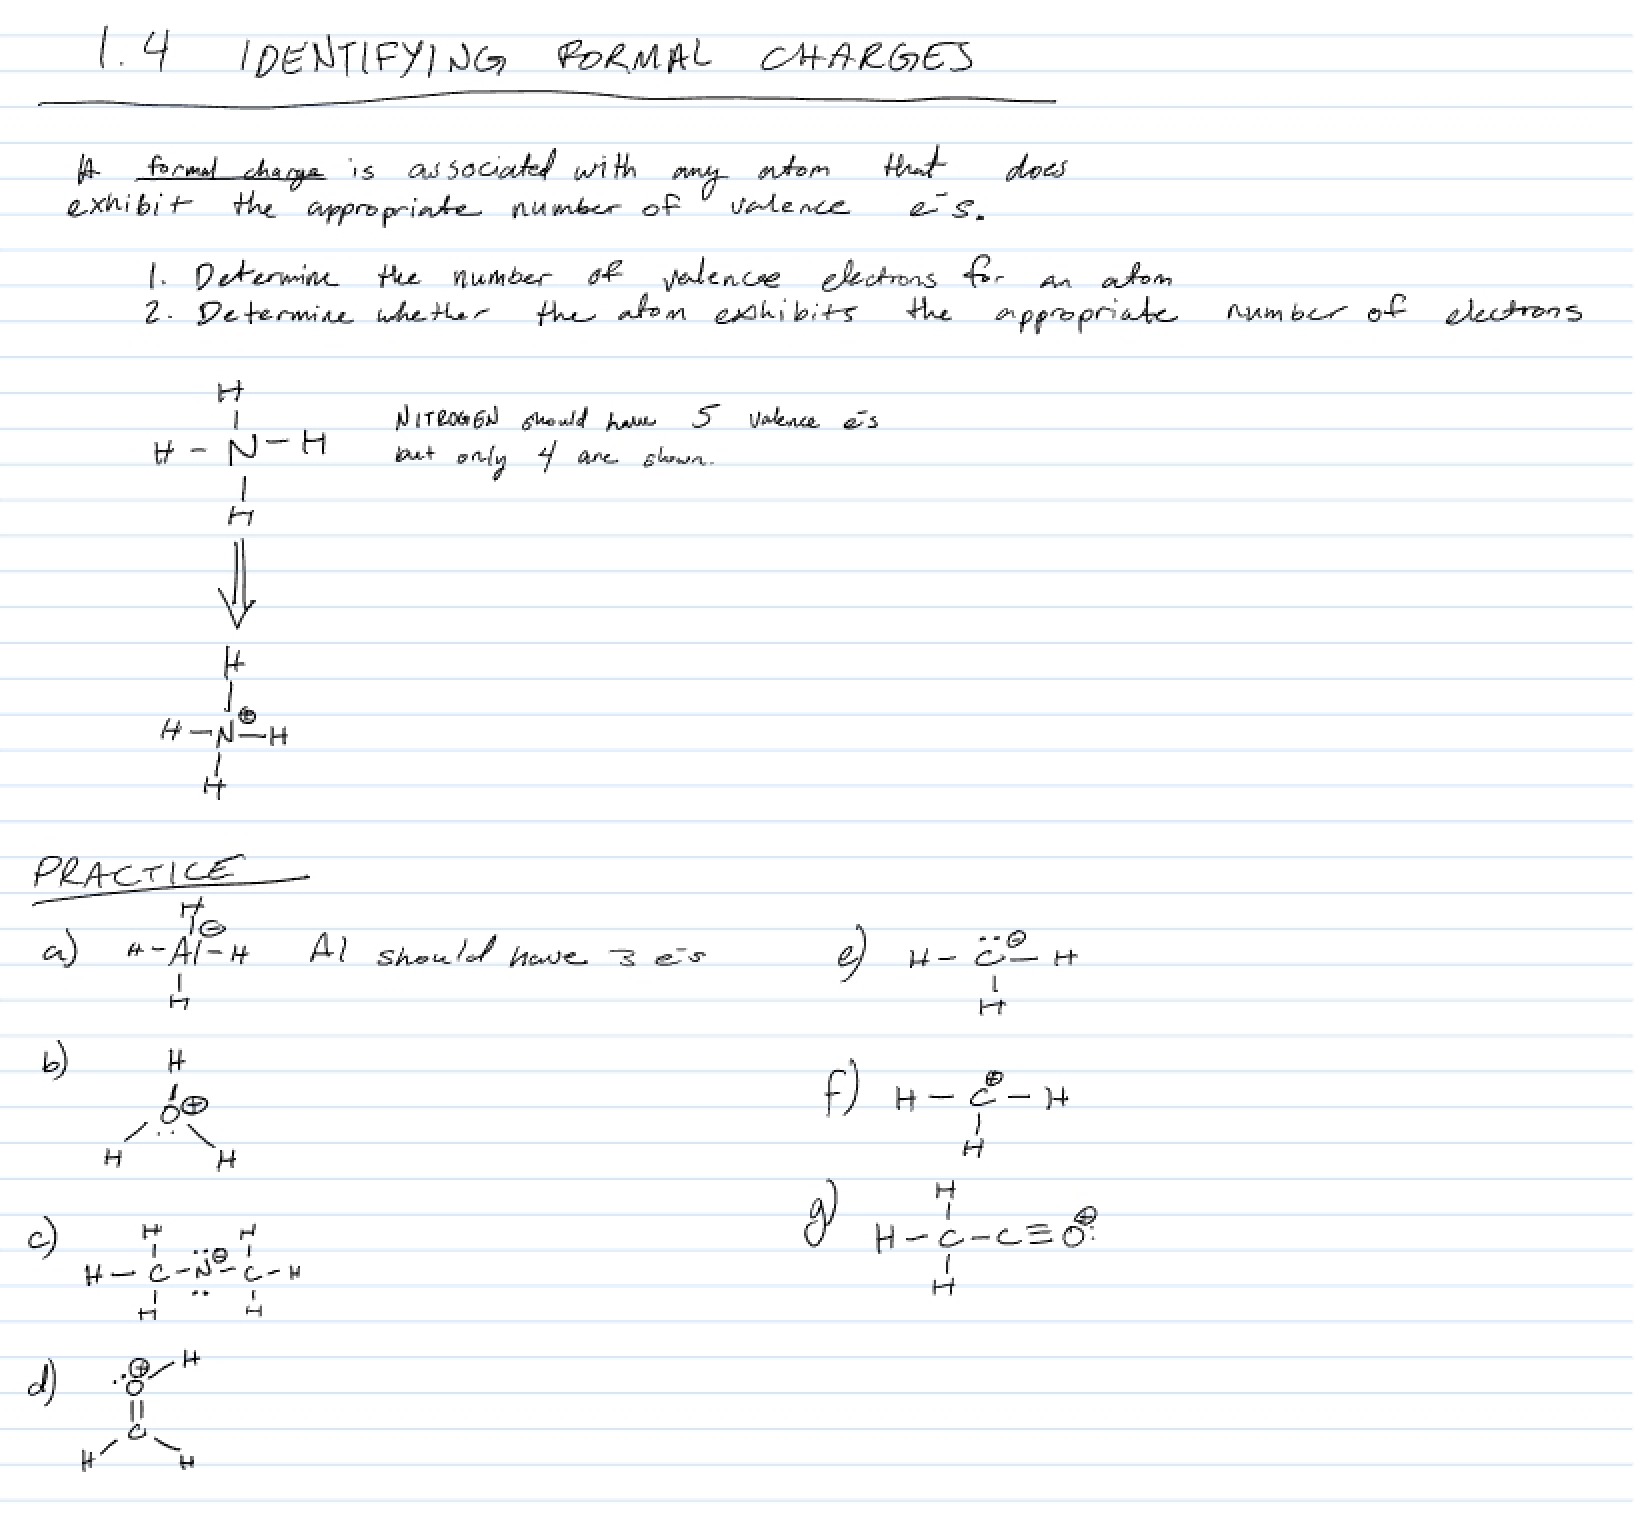 1.4 IDENTIFYING FORMAL CHARGES
A formal charge is associated with any atom that does
exhibit the appropriate number of valence e⁻s.
1. Determine the number of valence electrons for an atom
2. Determine whether the atom exhibits the appropriate number of electrons
H
H - N - H
H
NITROGEN should have 5 valence e⁻s
but only 4 are shown.
H
H - N⊕ - H
H
PRACTICE
a)
H
H - Al⊖ - H
H
Al should have 3 e⁻s
b)
H
O⊕
H H
c)
H H
H - C - N⊖ - C - H
H H
d)
⊕ H
O
C
H H
e)
H - C⊖ - H
H
f)
H - C⊕ - H
H
g)
H
H - C - C ≡ O⊕:
H